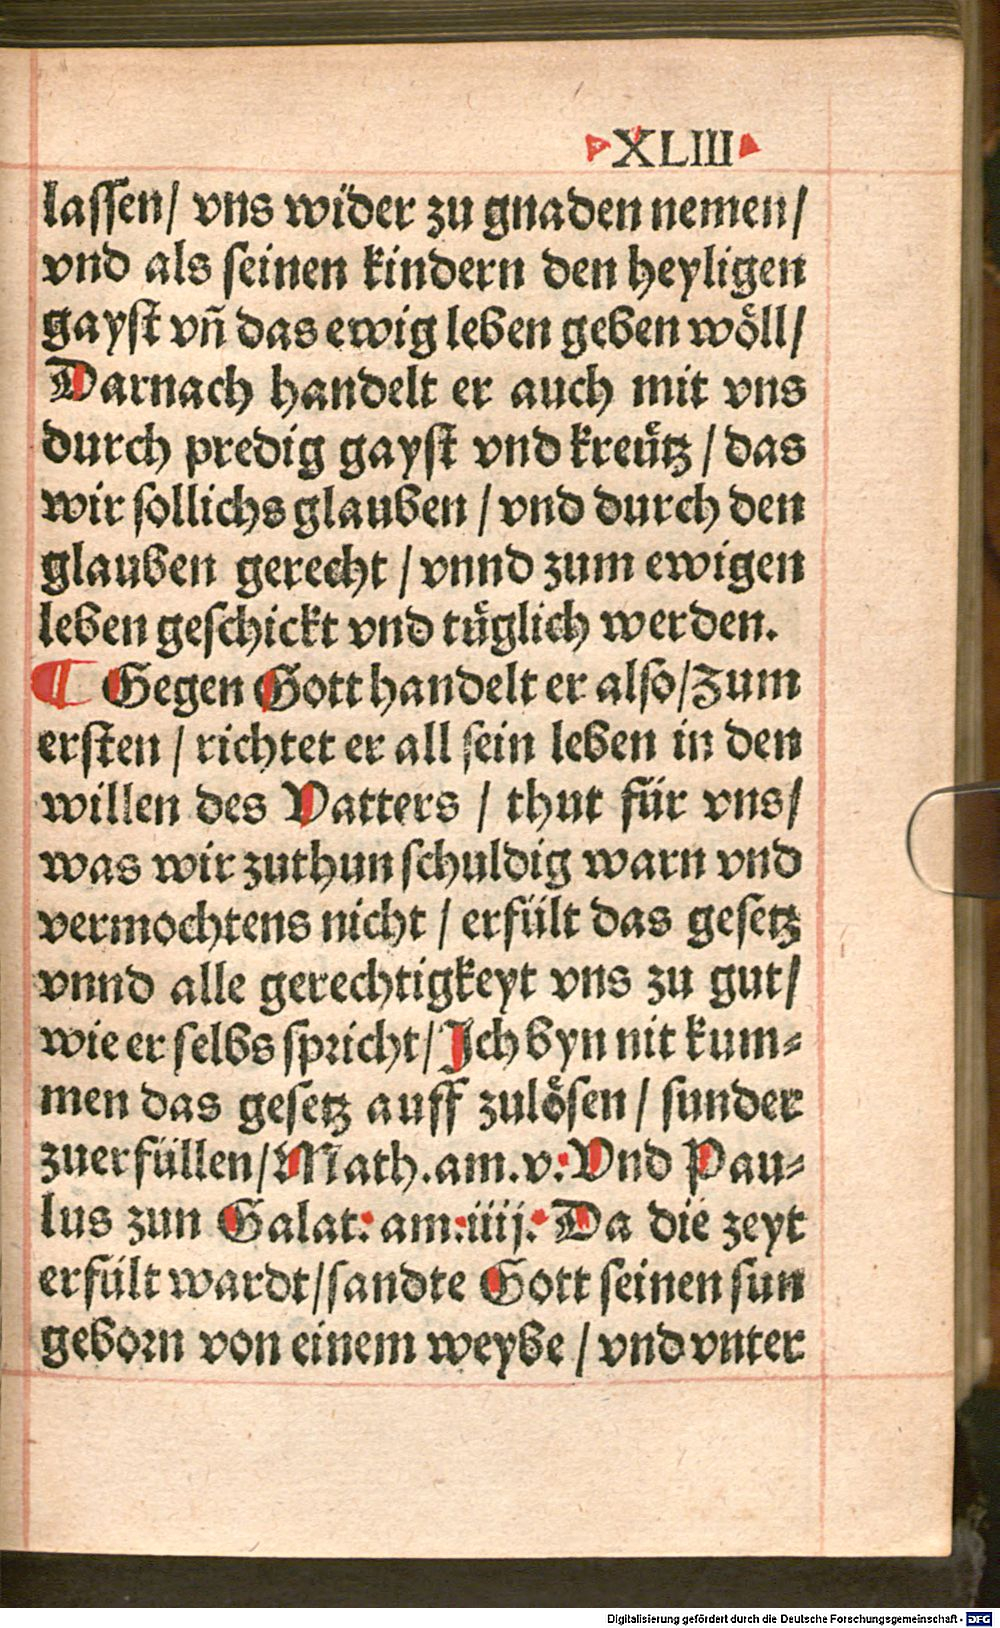 XLIII
lassen/ vns wider zu gnaden nemen/
vnd als seinen kindern den heyligen
gayst vñ das ewig leben geben wöll/
Darnach handelt er auch mit vns
durch predig gayst vnd kreütz / das
wir sollichs glauben / vnd durch den
glauben gerecht / vnnd zum ewigen
leben geschickt vnd tüglich werden.
¶ Gegen Gott handelt er also/Zum
ersten / richtet er all sein leben in den
willen des Vatters / thut für vns/
was wir zuthun schuldig warn vnd
vermochtens nicht / erfült das gesetz
vnnd alle gerechtigkeyt vns zu gut/
wie er selbs spricht/ Ich byn nit kum-
men das gesetz auff zulösen / sunder
zuerfüllen/Math.am.v. Vnd Pau-
lus zun Galat. am.iiij. Da die zeyt
erfült wardt/sandte Gott seinen sun
geborn von einem weybe / vnd vnter
Digitalisierung gefördert durch die Deutsche Forschungsgemeinschaft - DFG